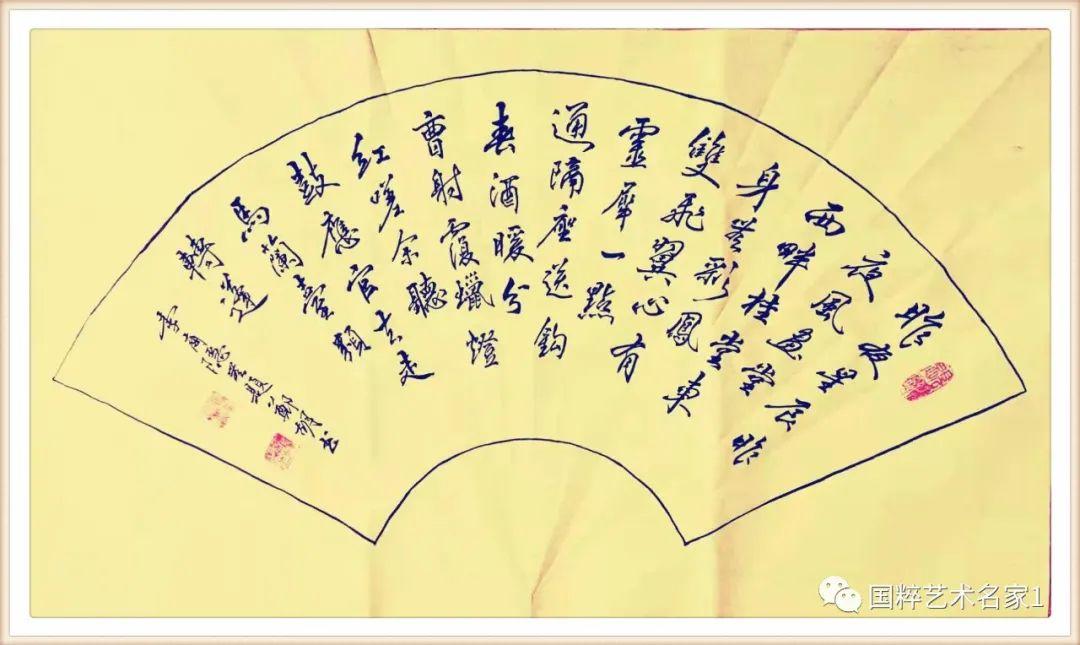 昨夜星辰昨
夜風畫堂
西畔桂堂東
身無彩鳳
雙飛翼心
有靈犀一點
通隔座送鈎
春酒暖分
曹射覆蠟燈
紅嗟余聽
鼓應官去走
馬蘭臺類
轉蓬
李商隱無題 鄭 書
国粹艺术名家1